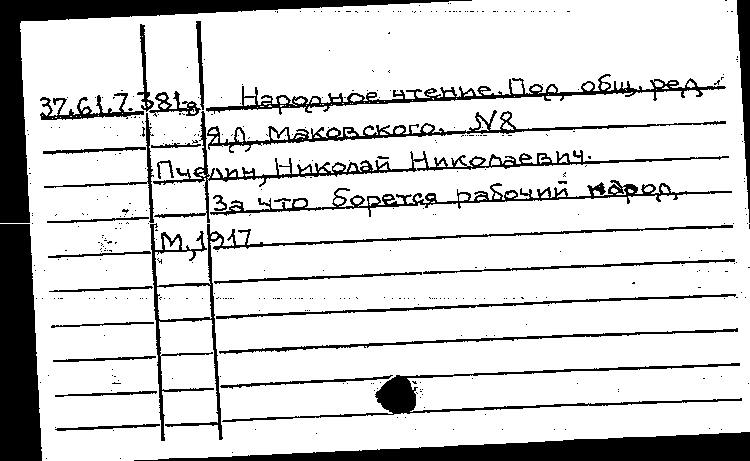 37.61.7.381в Народное чтение. Под общ. ред.
Я.Д. Маковского. N8
Пчелин, Николай Николаевич.
За что борется рабочий народ
М., 1917.